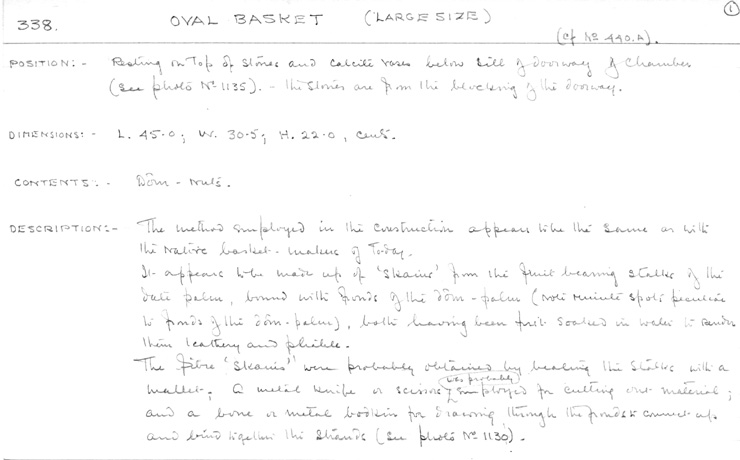 ①
338. OVAL BASKET (LARGE SIZE)
(cf No 440.A).
POSITION:- Resting on top of stones and calcite vases below sill of doorway of Chamber
(see photo No 1135). - The stones are from the blocking of the doorway.
DIMENSIONS:- L. 45.0; W. 30.5; H. 22.0, cent.
CONTENTS:- Dôm-nuts.
DESCRIPTION:- The method employed in the construction appears to be the same as with
the native basket-makers of Today.
It appears to be made up of 'skains' from the fruit bearing stalks of the
date palm, bound with fronds of the dôm-palm (note minute spots peculiar
to fronds of the dôm-palm), both having been first soaked in water to render
them leathery and pliable.
The fibre 'skains' were probably obtained by beating the stalks with a
mallet; a metal knife or scissors was probably employed for cutting out material;
and a bone or metal bodkin for drawing through the fronds to connect up
and bind together the strands (see photo No 1130).